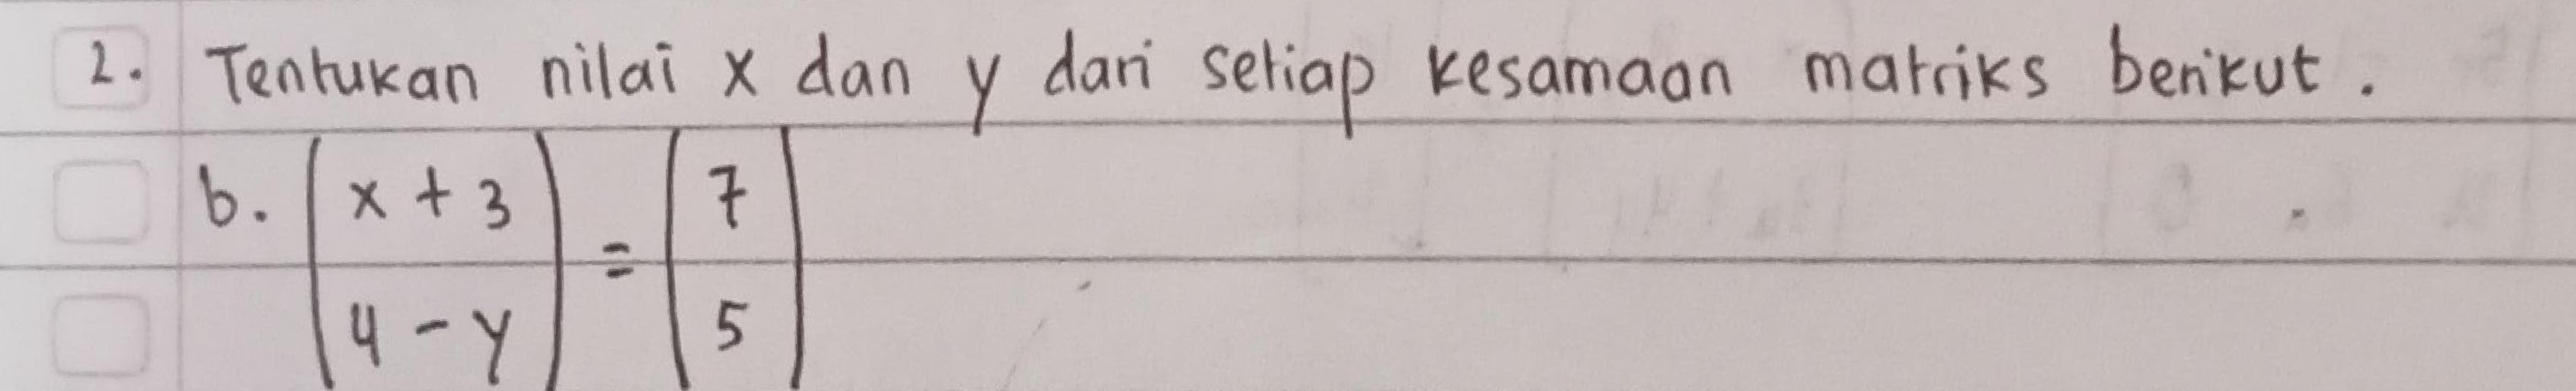 2. Tentukan nilai x dan y dari setiap kesamaan matriks berikut.
b. (x + 3) = (7)
(4 - y) (5)